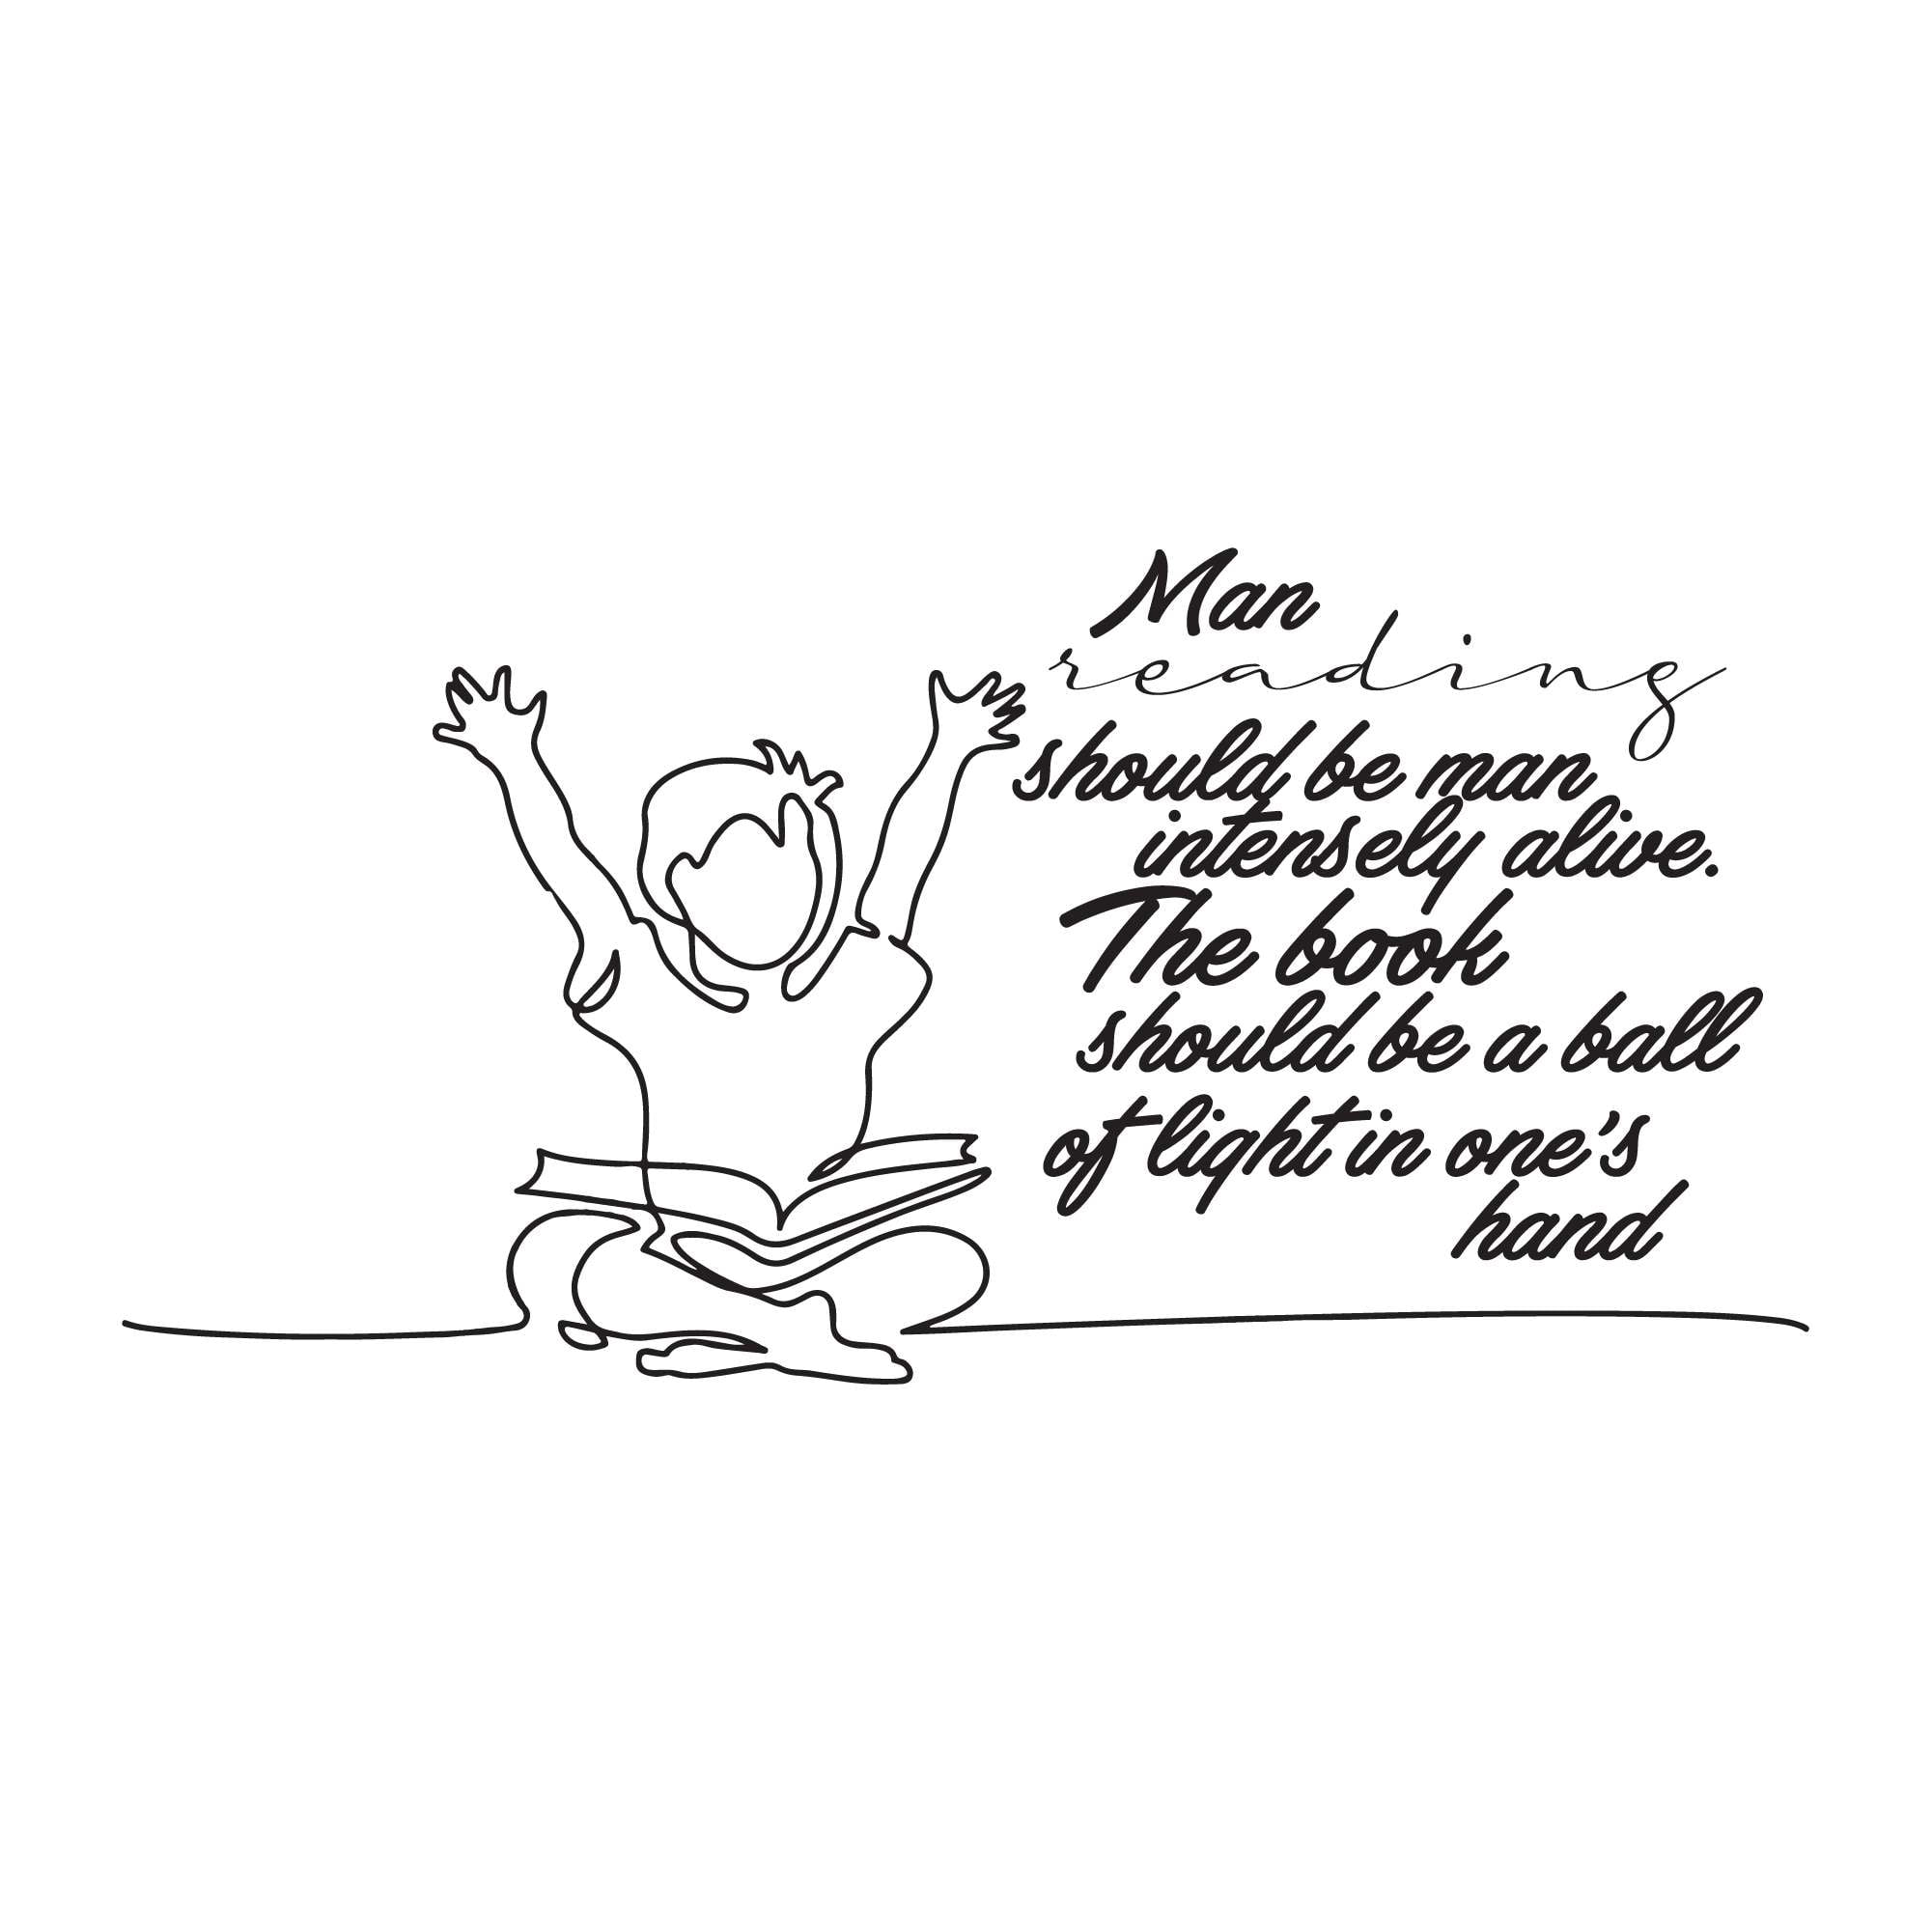 Man
reading
should be man
intensely alive.
The book
should be a ball
of light in one's
hand